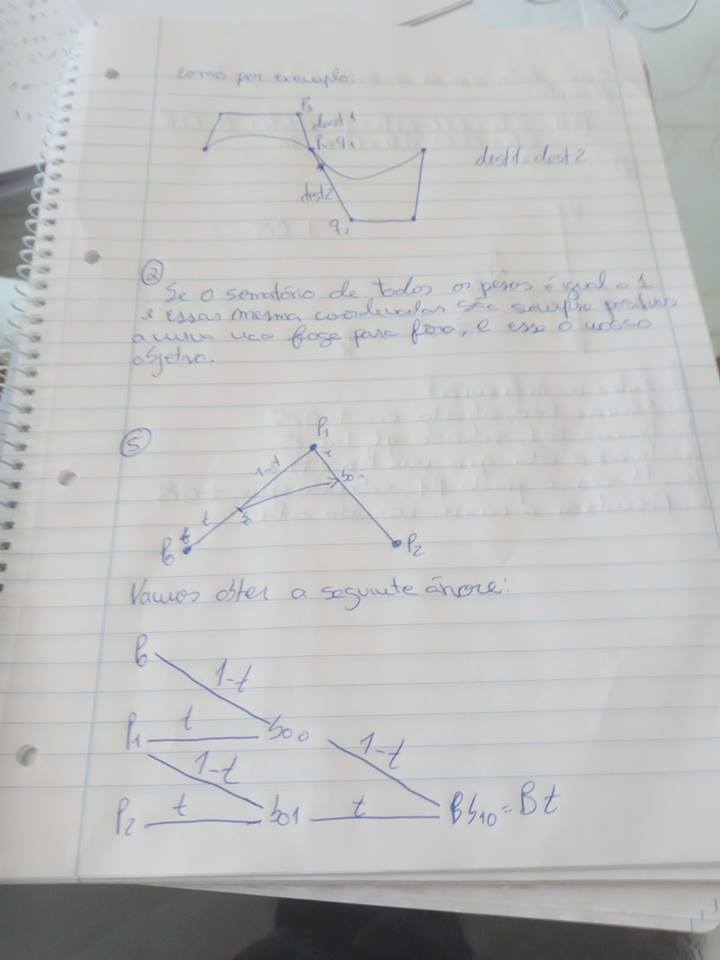 como por exemplo:
P3
dist1
P4=q1
dist1=dist2
dist2
q2
2
Se o somatório de todos os pesos é igual a 1
e essas mesma coordenadas são sempre positivas
a curva não foge para fora, e esse o nosso
objetivo.
5
P1
1-t
t
P2
Vamos obter a seguinte árvore:
1-t
P1 t b00 1-t
1-t
P2 t b01 t b10 = Bt